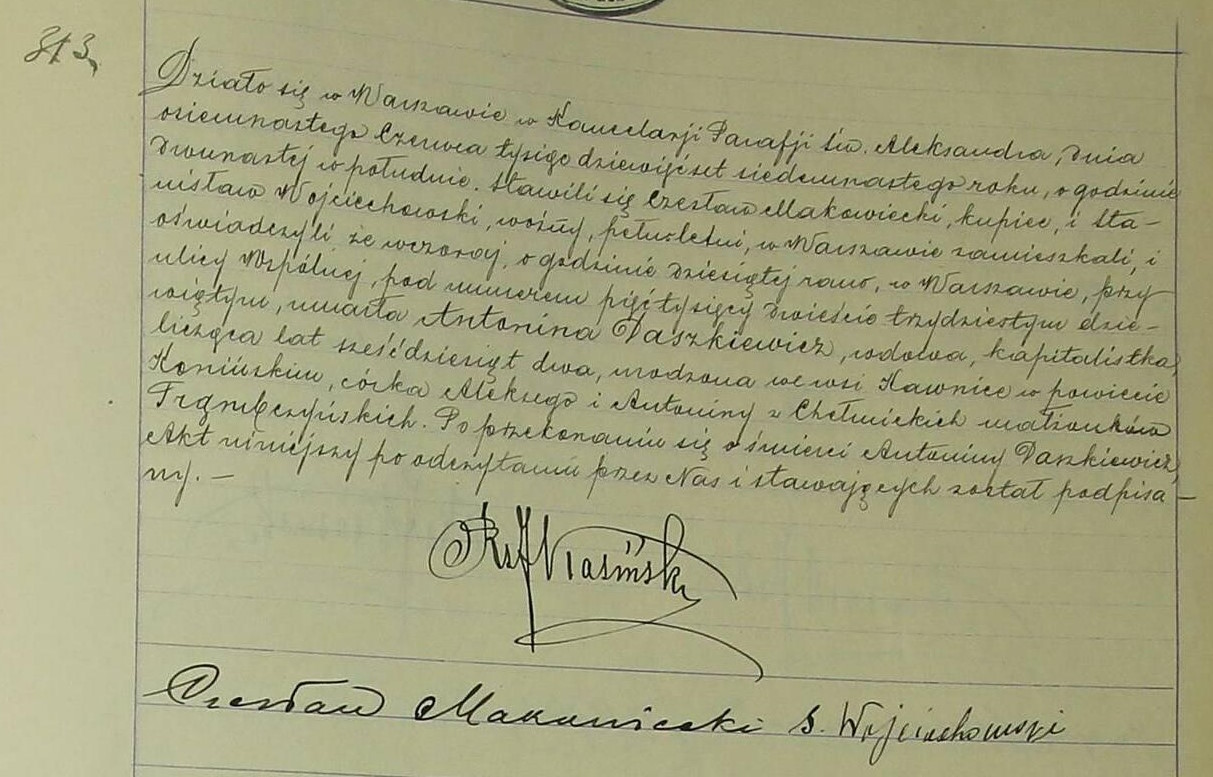 313,
Działo się w Warszawie w Kancelarji Parafji Św. Aleksandra, dnia
osiemnastego Czerwca tysiąc dziewięćset siedemnastego roku, o godzinie
dwunastej w południe. Stawili się Czesław Makowiecki, kupiec, i Sta-
nisław Wojciechowski, woźny, pełnoletni, w Warszawie zamieszkali, i
oświadczyli, że wczoraj, o godzinie dziesiątej rano, w Warszawie, przy
ulicy Wspólnej, pod numerem pięć tysięcy dwieście trzydziestym dzie-
wiątym, umarła Antonina Daszkiewicz, wdowa, kapitalistka,
licząca lat sześćdziesiąt dwa, urodzona we wsi Kawnice w powiecie
Konińskim, córka Aleksego i Antoniny z Chełmickich małżonków
Trąmbczyńskich. Po przekonaniu się o śmierci Antoniny Daszkiewicz,
Akt niniejszy po odczytaniu przez Nas i stawających został podpisa-
ny. —
Czesław Makowiecki S. Wojciechowski